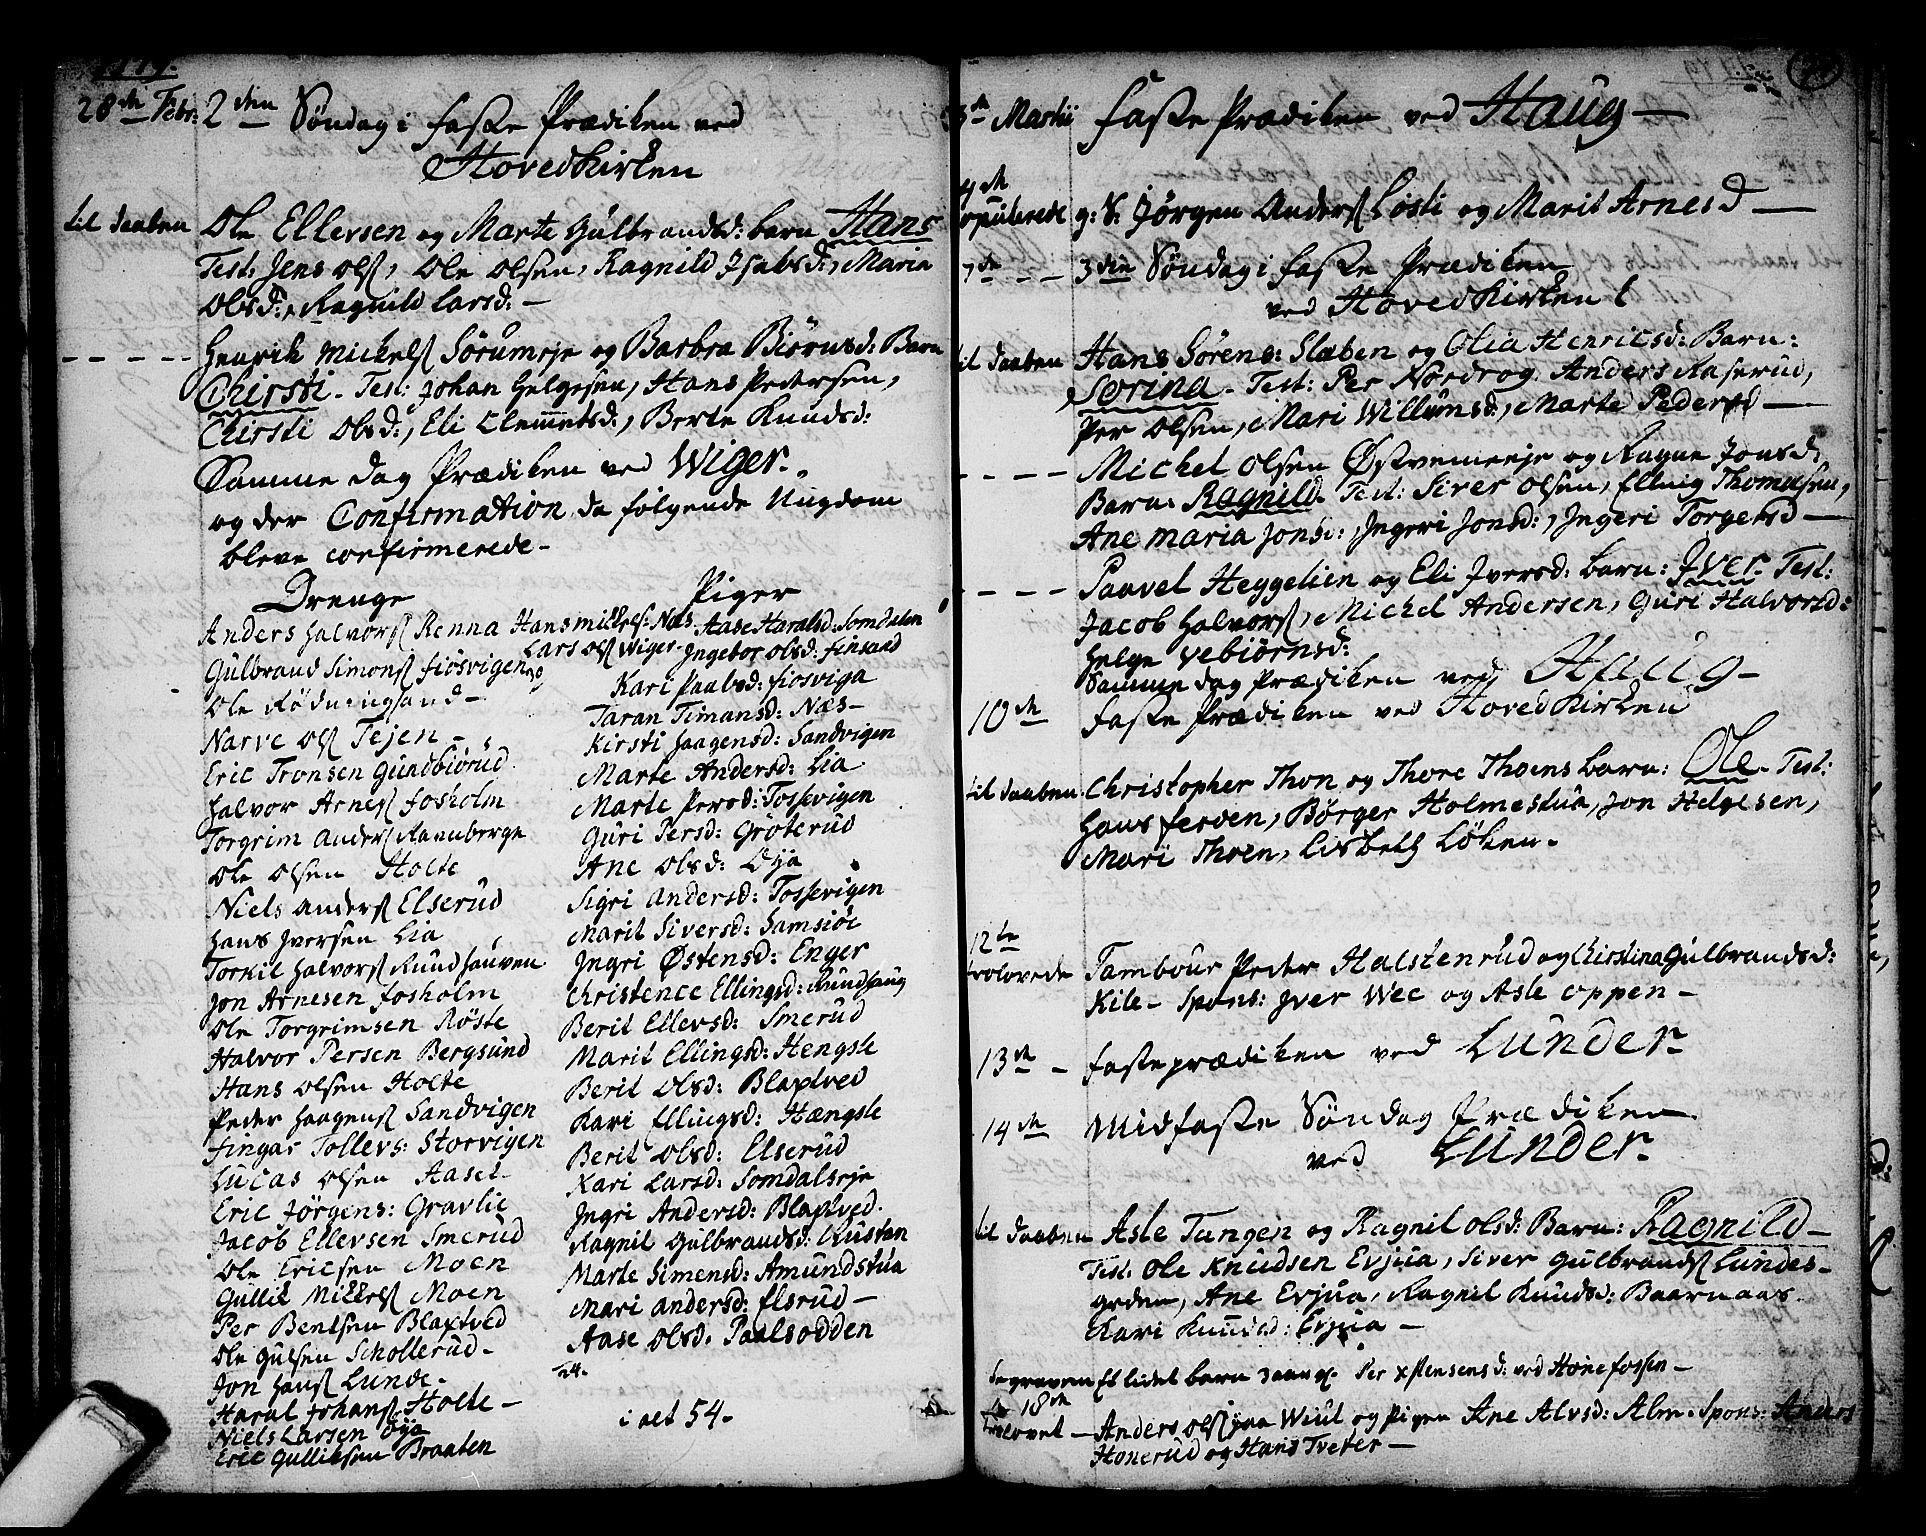 28de Febr: 2den Søndag i Faste Prædiken ved
Hovedkirken
til daaben Ole Ellersen og Marte Gulbrandsd: barn Hans
Test: Jens Ols, Ole Olsen, Ragnild Jsabsd:, Maria
Olsd:, Ragnild Larsd: -
- - - - Henrik Mickels Sørumeje og Barbra Biørnsd: Barn
Chirsti - Test: Johan Helgesen, Hans Pedersen,
Chirsti Olsd:, Eli Clemmetsd:, Berte Knudsd:
Samme dag Prædiken ved Wiger.
og der Confirmation da følgende Ungdom
bleve confirmerede -
Drenge
Anders Halvors Renna
Hans Mickels: Næs
Lars Ols Wiger
Gulbrand Simons Fiosvigen
Ole Rødningsand -
Narve Ols Tejen -
Eric Tronsen Gundbiørud
Halvor Arnes Fosholm
Torgrim Anders Rannberge
Ole Olsen Holte
Niels Anders Elserud
Hans Jversen Lia
Torkil Halvors Rundhauven
Jon Arnesen Fosholm
Ole Torgrimsen Røste
Halvor Persen Bergsund
Hans Olsen Holte
Peder Haagens Sandvigen
Fingar Tollevs: Storvigen
Lucas Olsen Aaset
Eric Jørgens: Gravlie
Jacob Ellevsen Smerud
Ole Ericsen Moen
Gullik Mickels Moen
Per Bentsen Blaptved
Ole Gulsen Schollerud -
Jon Hans Lunde -
Haral Johans Holte -
Niels Larsen Øya
Eric Gulliksen Braaten
Piger
Aase Haralsd: Somdalen
Ingebor Olsd: Finsand
Kari Paalsd: Fiosviga
Taran Timansd: Næs -
Kirsti Haagensd: Sandvigen
Marte Andersd: Lia
Marte Persd: Tossevigen
Guri Persd: Grøterud
Ane Olsd: Øya
Sigri Andersd: Tossevigen
Marit Siversd: Samsiøe
Jngri Østensd: Enger
Christence Ellingsd: Rundhaug
Berit Ellevsd: Smerud
Marit Ellingsd: Hengsle
Berit Olsd: Blaptved
Kari Ellingsd: Hængsle
Berit Olsd: Elserud
Kari Larsd: Somdalseje
Jngri Andersd: Blaptved.
Ragnil Gulbrandsd: Rusten
Marte Simensd: Amundstua
Mari Andersd: Elsrud -
Aase Olsd: Paalsodden
24.
i alt 54 -
Martii Faste Prædiken ved Haug -
4de
Copulerede g: S: Jørgen Anders Losti og Marit Arnesd -
7de - - - 3die Søndag i Faste Prædiken
ved Hovedkirken
til daaben Hans Sørens: Slæben og Olia Henricsd: Barn:
Sørina - Test: Per Nordrog, Anders Raserud,
Per Olsen, Mari Willumsd:, Marte Pedersd -
- - - - Michel Olsen Østvemeeje og Ragne Jonsd:
Barn: Ragnild. Test: Siver Olsen, Elling Thomasen,
Ane Maria Jonsd:, Jngeri Jonsd:, Jngeri Torgersd -
- - - - Paavel Heggelien og Eli Jversd: barn: Jver. Test:
Jacob Halvors, Michel Andersen, Guri Halvorsd:
Helge Vebiørnsd:
Samme dag Prædiken ved Haug -
10de Faste Prædiken ved Hovedkirken
til daaben Christopher Thon og Thore Thoens barn: Ole - Test:
Hans Ferden, Børger Holmestua, Jon Helgesen,
Mari Thoen, Lisbeth Løken -
12te
trolovede Tambour Peder Halstenrud og Chirstina Gulbrandsd:
Kile - Spons: Jver Wee og Asle Oppen -
13de - Fasteprædiken ved Lunder -
14de Midfaste Søndag Prædiken
ved Lunder -
til daaben Asle Tungen og Ragnil Olsd: Barn: Ragnild -
Test: Ole Knudsen Evjua, Siver Gulbrands Lundes-
gorden, Ane Evjua, Ragnil Knudsd: Baarnaas
Kari Knudsd: Evjua -
begraven Et lidet barn 3 aar g. Per xstensensd: ved Hønefossen -
18de
trolovet - Anders Ols paa Weul og Pigen Ane Alvsd: Alm - Spons: Anders
Honerud og Hans Tveter -